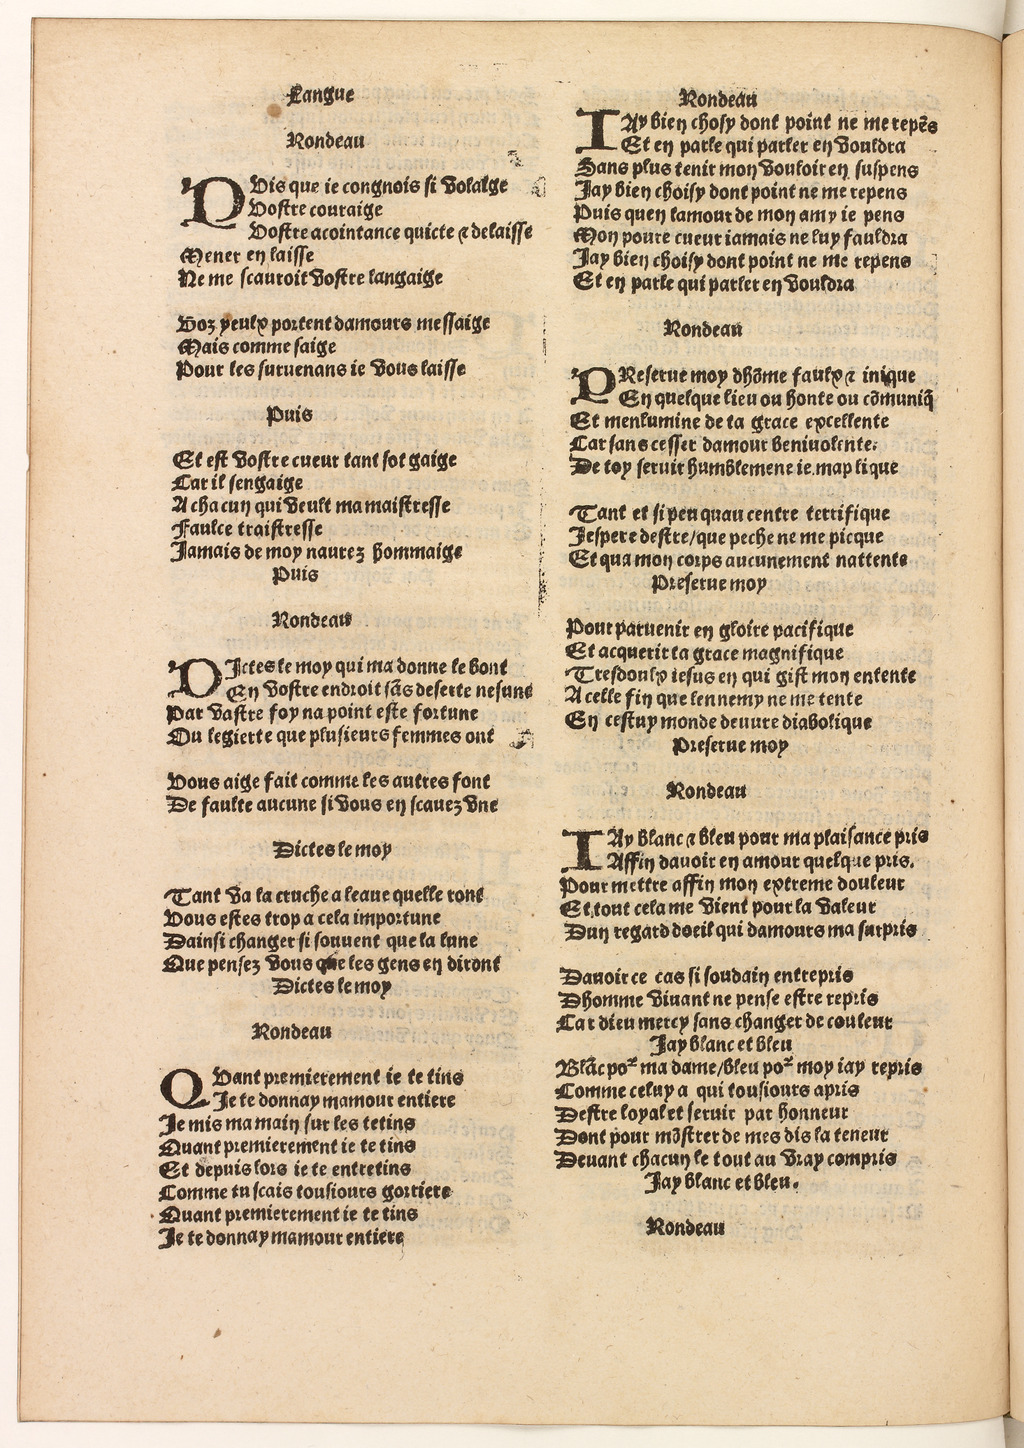 Langue
Rondeau
PVis que ie congnois si volaige
Vostre couraige
Vostre acointance quicte ⁊ delaisse
Mener en laisse
Ne me scauroit vostre langaige
Voz yeulx portent damours messaige
Mais comme saige
Pour les suruenans ie vous laisse
Puis
Et est vostre cueur tant sot gaige
Car il sengaige
A chacun qui veult ma maistresse
Faulce traistresse
Jamais de moy naurez hommaige
Puis
Rondeau
DIctes le moy qui ma donne le bont
En vostre endroit sãs deserte nesune
Par vastre foy na point este fortune
Ou legierte que plusieurs femmes ont
Vous aige fait comme les autres font
De faulte aucune si vous en scauez vne
Dictes le moy
Tant va la cruche a leaue quelle ront
Vous estes trop a cela importune
Dainsi changer si souuent que la lune
Que pensez vous que les gens en diront
Dictes le moy
Rondeau
QVant premierement ie te tins
Je te donnay mamour entiere
Je mis ma main sur les tetins
Quant premierement ie te tins
Et depuis lors ie te entretins
Comme tu scais tousiours gorriere
Quant premierement ie te tins
Je te donnay mamour entiere
Rondeau
IAy bien choisy dont point ne me repẽs
Et en parle qui parler en vouldra
Sans plus tenir mon vouloir en suspens
Jay bien choisy dont point ne me repens
Puis quen lamour de mon amy ie pens
Mon poure cueur iamais ne luy fauldra
Jay bien choisy dont point ne me repens
Et en parle qui parler en vouldra
Rondeau
PReserue moy dhõme faulx ⁊ inique
En quelque lieu ou honte ou cõmuniq̃
Et menlumine de ta grace excellente
Car sans cesser damour beniuolente.
De toy seruir humblemene ie map lique
Tant et si peu quau centre terrifique
Jespere destre/que peche ne me picque
Et qua mon corps aucunement nattente
Preserue moy
Pour paruenir en gloire pacifique
Et acquerir ta grace magnifique
Tresdoulx iesus en qui gist mon entente
A celle fin que lennemy ne me tente
En cestuy monde deuure diabolique
Preserue moy
Rondeau
IAy blanc ⁊ bleu pour ma plaisance pris
Affin dauoir en amour quelque pris.
Pour mettre affin mon extreme douleur
Et tout cela me vient pour la valeur
Dun regard doeil qui damours ma surpris
Dauoir ce cas si soudain entrepris
Dhomme viuant ne pense estre repris
Car dieu mercy sans changer de couleur
Jay blanc et bleu
Blãc poꝰ ma dame/bleu poꝰ moy iay repris
Comme celuy a qui tousiours apris
Destre loyal et seruir par honneur
Dont pour mõstrer de mes dis la teneur
Deuant chacun le tout au vray compris
Jay blanc et bleu.
Rondeau